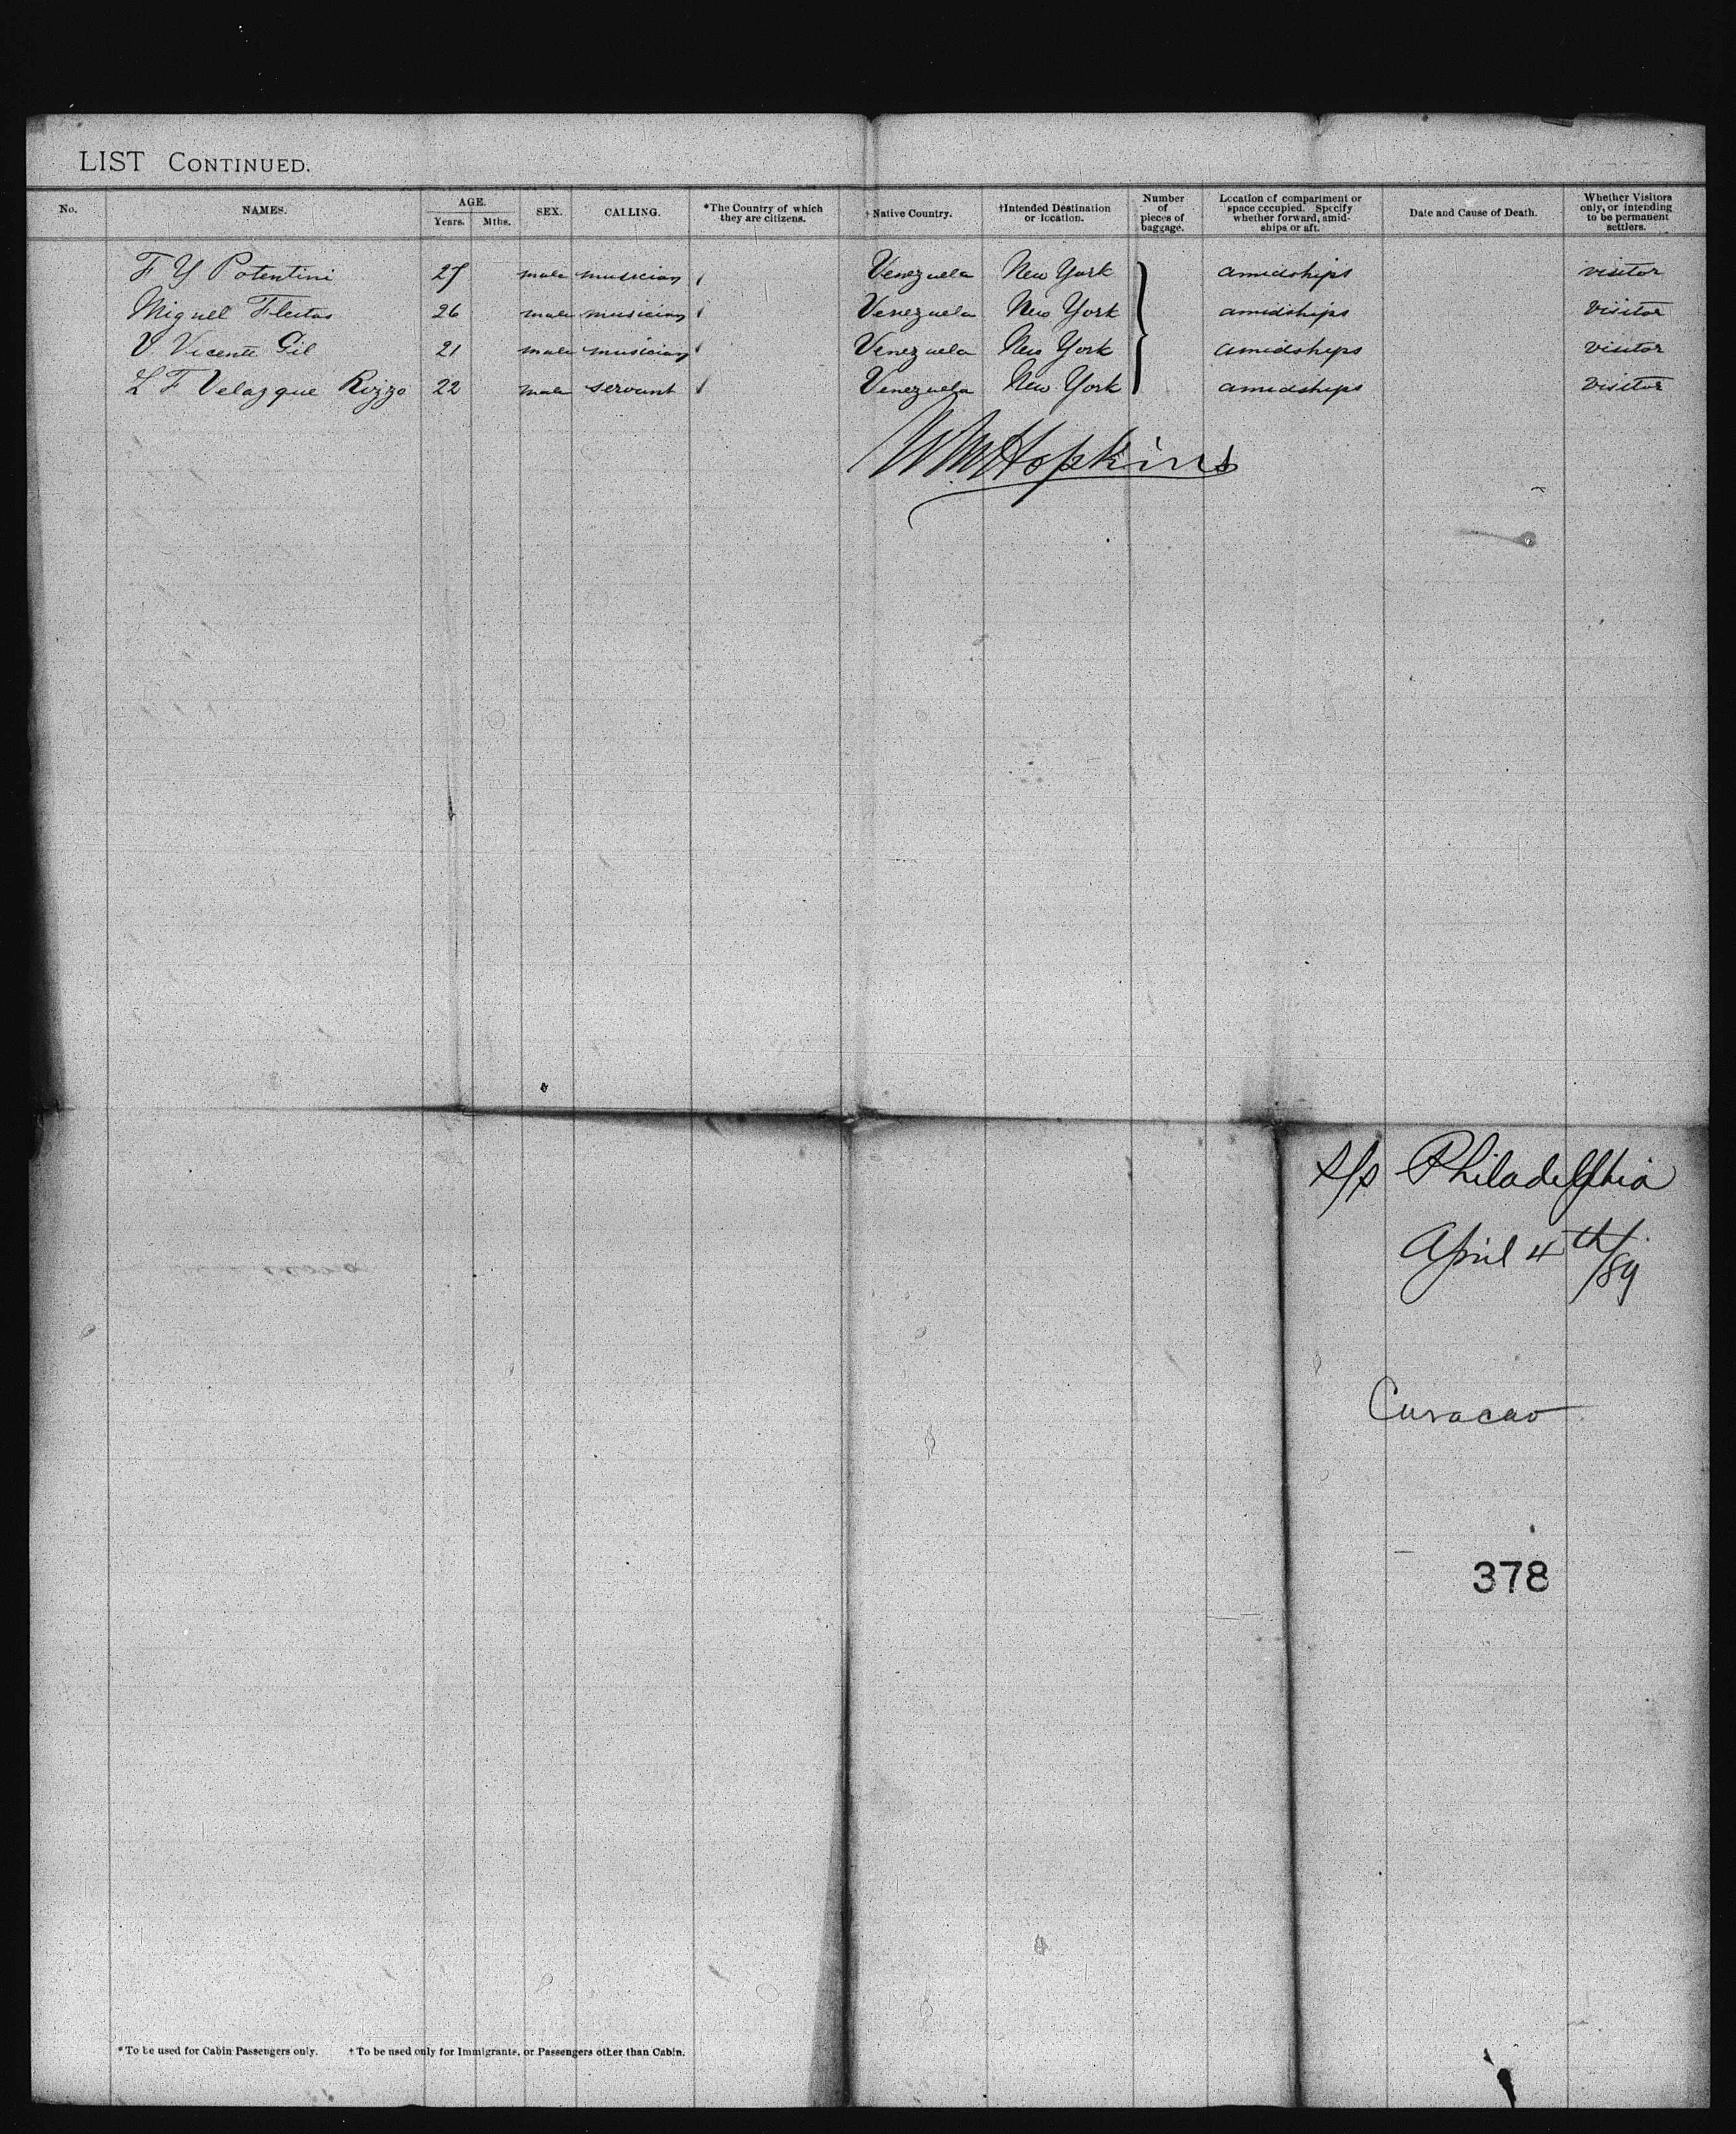 LIST CONTINUED.
No. NAMES. AGE. Years. Mths. SEX. CALLING. *The Country of which they are citizens. †Native Country. †Intended Destination or location. Number of pieces of baggage. Location of compartment or space occupied. Specify whether forward, amidships or aft. Date and Cause of Death. Whether Visitors only, or intending to be permanent settlers.
F Y Potentini 27 male musician Venezuela New York amidships visitor
Miguel Fleitas 26 male musician Venezuela New York amidships visitor
V Vicente Gil 21 male musician Venezuela New York amidships visitor
L F Velazque Rizzo 22 male servant Venezuela New York amidships visitor
WM Hopkins
s/s Philadelphia
April 4th/89
Curacao
378
*To be used for Cabin Passengers only. †To be used only for Immigrants, or Passengers other than Cabin.